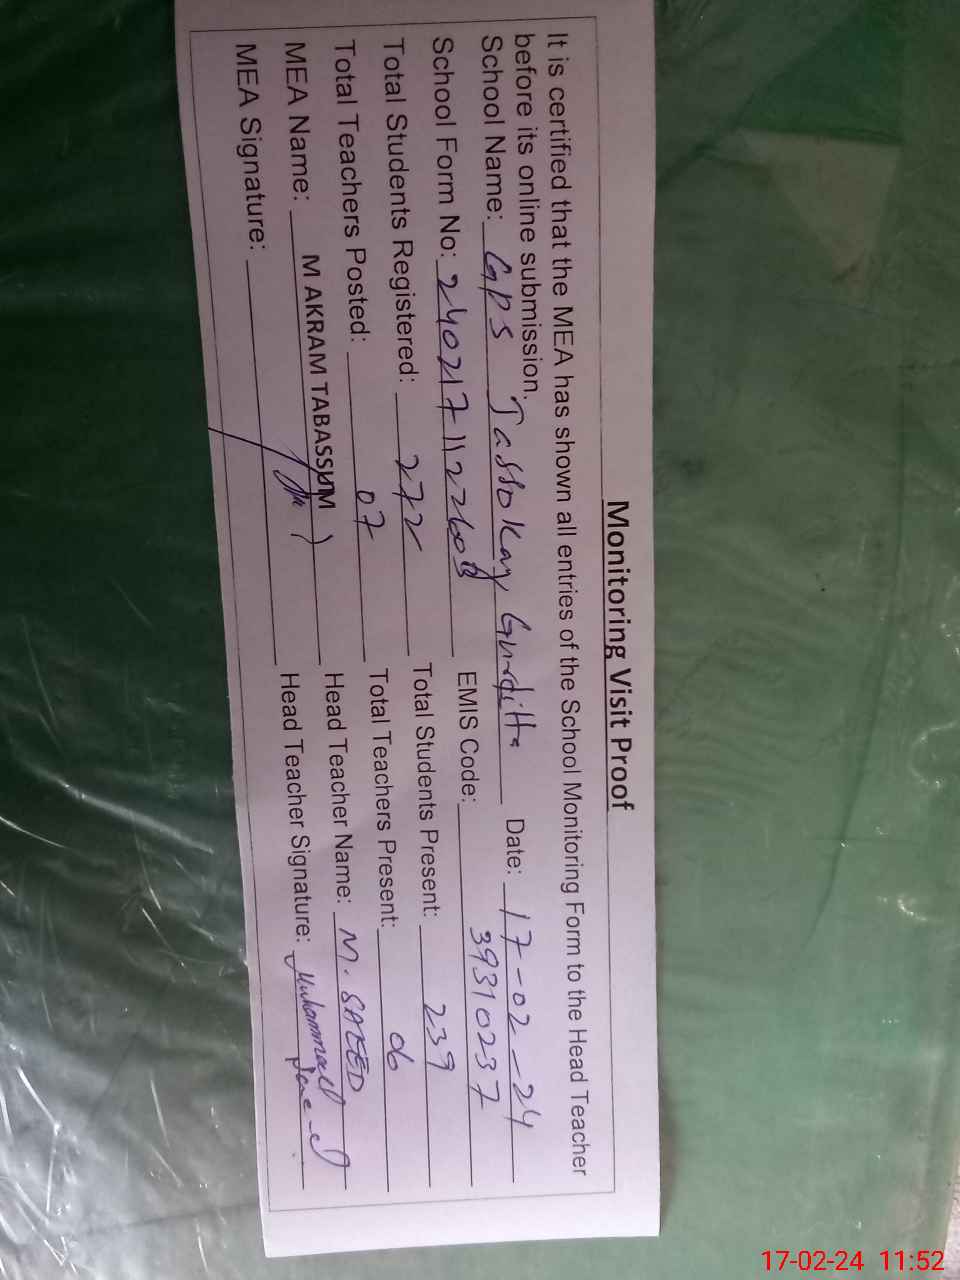 Monitoring Visit Proof
It is certified that the MEA has shown all entries of the School Monitoring Form to the Head Teacher
before its online submission.
School Name: GPS Tassokay Gurditta Date: 17-02-24
School Form No: 24021711226 EMIS Code: 39310237
Total Students Registered: 272 Total Students Present: 239
Total Teachers Posted: 07 Total Teachers Present: 06
MEA Name: M AKRAM TABASSUM Head Teacher Name: M. SAEED
MEA Signature: Head Teacher Signature: Muhammad
17-02-24 11:52